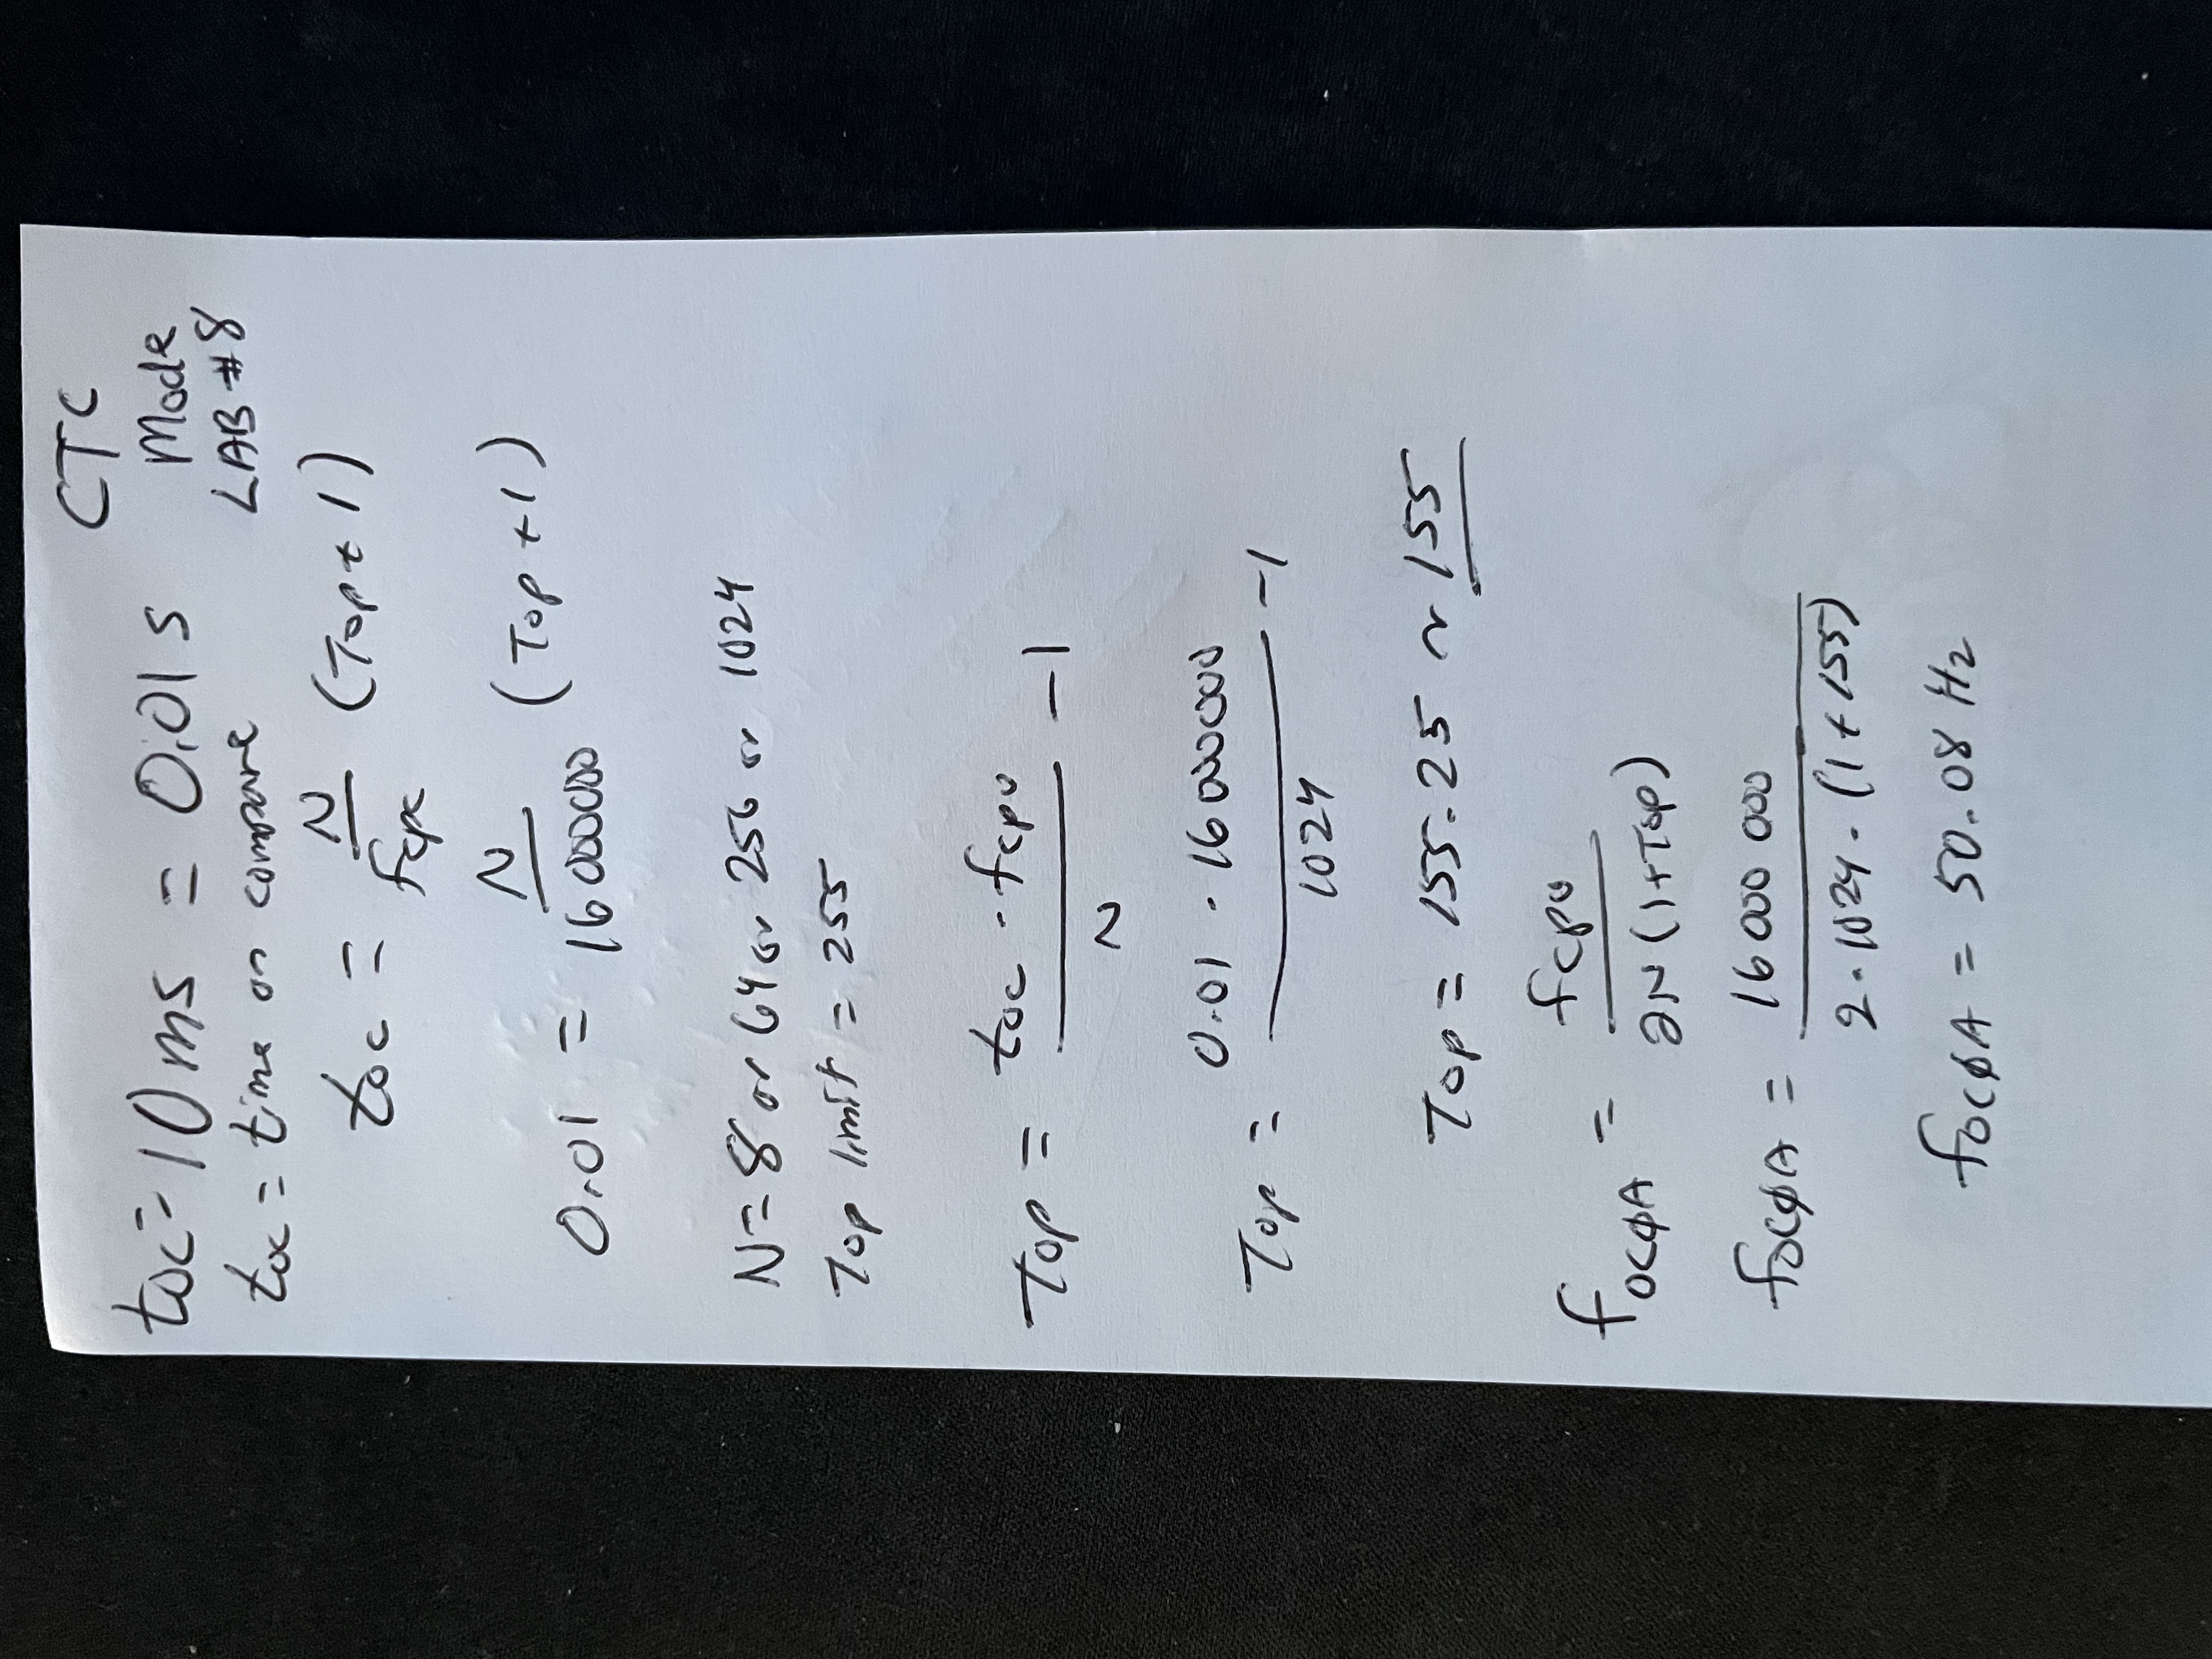 CTC
Mode
LAB #8
toc = 10 ms = 0.01 s
toc = time on compare
toc = N / fcpu (Top + 1)
0.01 = N / 16000000 (Top + 1)
N = 8 or 64 or 256 or 1024
Top limit = 255
Top = toc · fcpu / N - 1
Top = 0.01 · 16000000 / 1024 - 1
Top = 155.25 ~ 155
fOC0A = fcpu / 2N (1+Top)
fOC0A = 16 000 000 / 2 · 1024 · (1 + 155)
fOC0A = 50.08 Hz